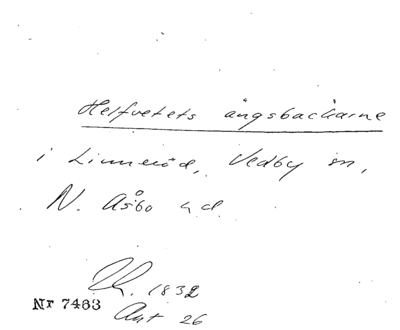 Helfvetets ängsbackarne
i Linneröd, Vedby sn,
N. Åsbo hd.
1832
Nr 7463
Akt 26